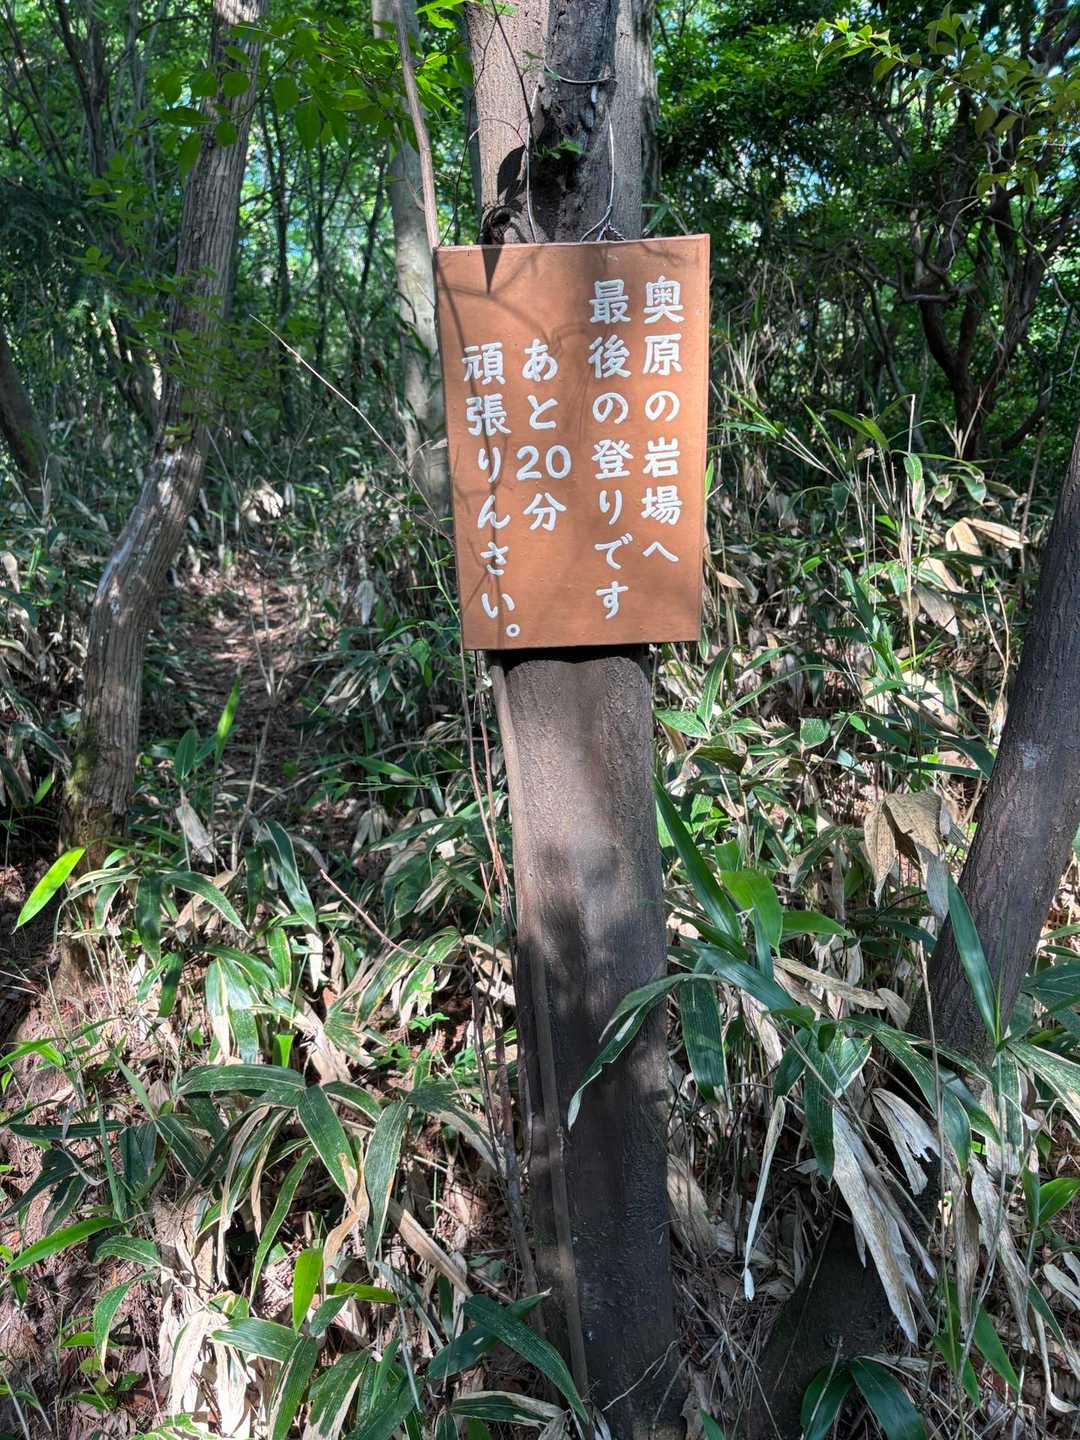 奥原の岩場へ
最後の登りです
あと20分
頑張りんさい。